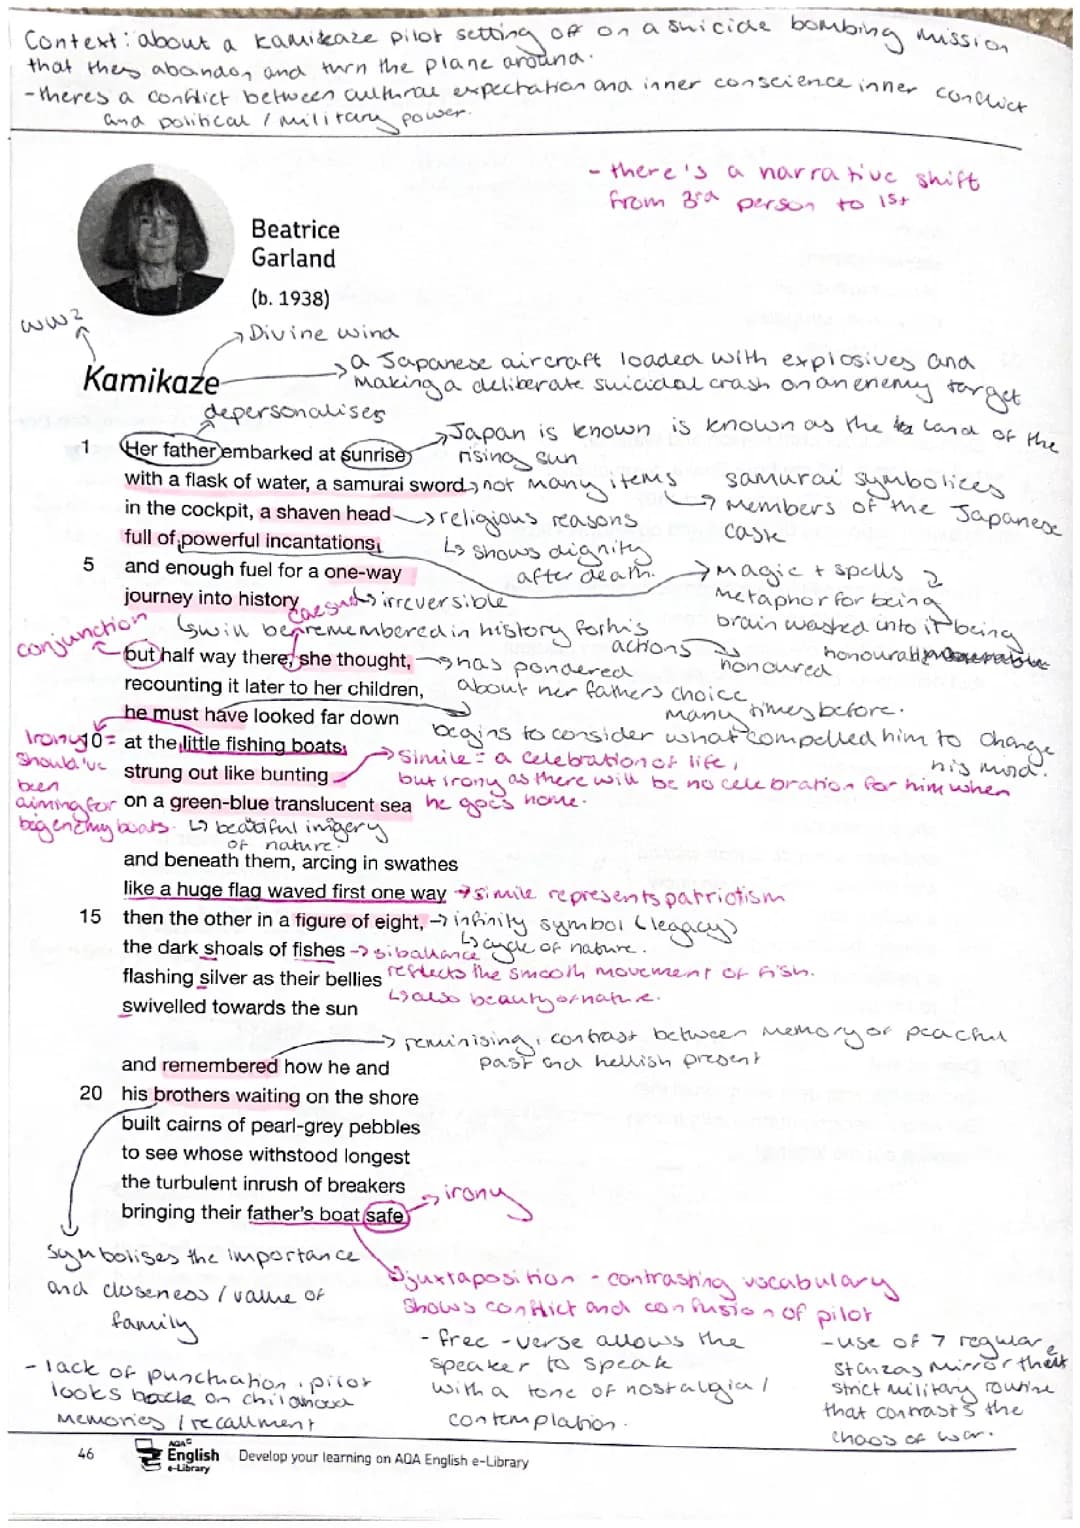 Context: about a kamikaze pilot setting off on a suicide bombing mission
that they abandon and turn the plane around.
-theres a conflict between cultural expectation and inner conscience inner conflict
and political / military power.
- there's a narrative shift
from 3rd person to 1st
Beatrice
Garland
(b. 1938)
WW2
Divine wind
Kamikaze
a Japanese aircraft loaded with explosives and
making a deliberate suicidal crash on an enemy target
depersonalises
Japan is known is known as the land of the
rising sun
1 Her father embarked at sunrise
with a flask of water, a samurai sword
not many items
samurai symbolices
members of the Japanese
cask
in the cockpit, a shaven head
religious reasons
full of powerful incantations
shows dignity
after death.
5 and enough fuel for a one-way
magic + spells
metaphor for being
brain washed into it being
honourable
journey into history
caesura
irreversible
will be remembered in history for his
actions
honoured
conjunction
but half way there, she thought,
has pondered
about her fathers choice
many times before.
recounting it later to her children,
he must have looked far down
begins to consider what compelled him to change
his mind.
10 at the little fishing boats
Irony =
should've
been
aiming for
big enemy boats.
strung out like bunting
Simile = a celebration of life,
but irony as there will be no celebration for him when
he goes home.
on a green-blue translucent sea
beautiful imigery
of nature.
and beneath them, arcing in swathes
like a huge flag waved first one way
simile represents patriotism
15 then the other in a figure of eight,
infinity symbol (legacy)
cycle of nature.
the dark shoals of fishes
sibalance
reflects the smooth movement of fish.
flashing silver as their bellies
also beauty of nature.
swivelled towards the sun
reminising, contrast between memory of peaceful
past and hellish present
and remembered how he and
20 his brothers waiting on the shore
built cairns of pearl-grey pebbles
to see whose withstood longest
the turbulent inrush of breakers
bringing their father's boat safe
irony
symbolises the importance
and closeness / value of
family
juxtaposition - contrasting vocabulary
shows conflict and confusion of pilot
- lack of punctuation, pilot
looks back on childhood
memories / recallment
- free-verse allows the
speaker to speak
with a tone of nostalgia /
contemplation.
-use of 7 regular
stanzas mirror the
strict military routine
that contrasts the
chaos of war.
46
AQA
English
e-Library
Develop your learning on AQA English e-Library